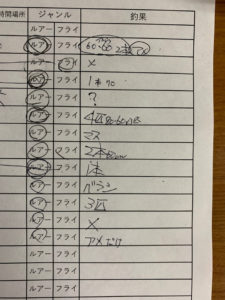 時間場所 ジャンル 釣果
ルアー フライ
ルアー フライ 60 60 2本
ルアー フライ ×
ルアー フライ 1本 70
ルアー フライ ?
ルアー フライ 4匹
ルアー フライ マス
ルアー フライ 2本
ルアー フライ 1本
ルアー フライ
ルアー フライ 3匹
ルアー フライ ×
ルアー フライ アメだけ
ルアー フライ
ルアー フライ